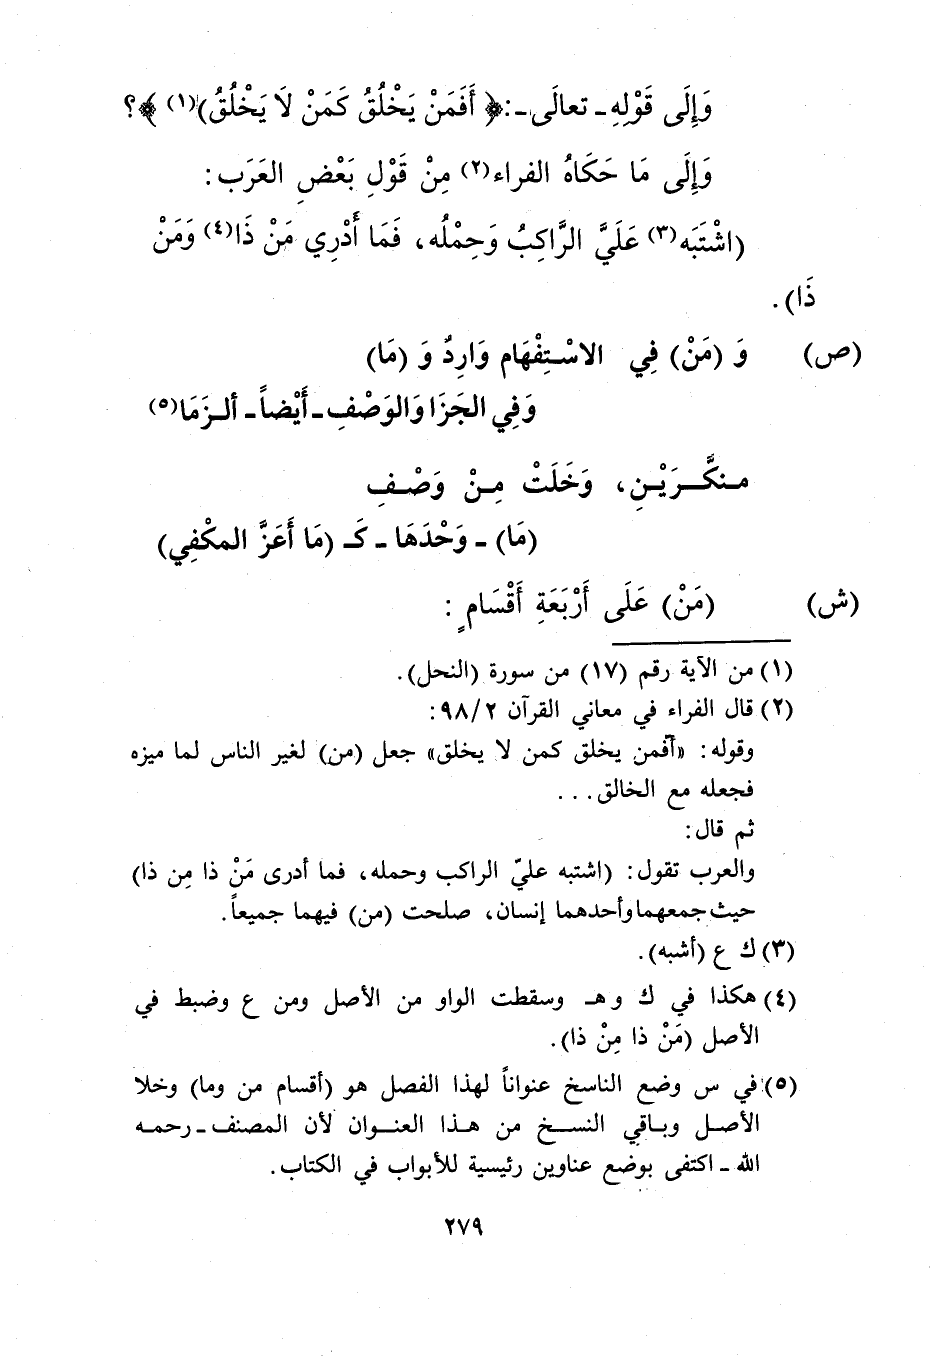 وَإِلَى قَوْلِهِ - تعالَى -: ﴿ أَفَمَنْ يَخْلُقُ كَمَنْ لَا يَخْلُقُ)(١) ﴾؟
وَإِلَى مَا حَكَاهُ الفراء(٢) مِنْ قَوْلِ بَعْضِ العَرَبِ:
(اشْتَبَه(٣) عَلَيَّ الرَّاكِبُ وَحِمْلُه، فَمَا أَدْرِي مَنْ ذَا(٤) وَمَنْ
ذَا).
(ص) وَ (مَنْ) فِي الاسْتِفْهَامِ وَارِدٌ وَ (مَا)
وَفِي الجَزَا وَالوَصْفِ - أَيْضاً - ألزَمَا(٥)
منكَّرَيْنِ، وَخَلَتْ مِنْ وَصْفِ
(مَا) - وَحْدَهَا - كَـ (مَا أَعَزَّ المكْفِي)
(ش) (مَنْ) عَلَى أَرْبَعَةِ أَقْسَامٍ :
(١) من الآية رقم (١٧) من سورة (النحل).
(٢) قال الفراء في معاني القرآن ٩٨/٢:
وقوله: «أفمن يخلق كمن لا يخلق» جعل (من) لغير الناس لما ميزه
فجعله مع الخالق...
ثم قال:
والعرب تقول: (اشتبه عليّ الراكب وحمله، فما أدرى مَنْ ذا مِن ذا)
حيث جمعهما وأحدهما إنسان، صلحت (من) فيهما جميعاً.
(٣) ك ع (أشبه).
(٤) هكذا في ك و هـ وسقطت الواو من الأصل ومن ع وضبط في
الأصل (مَنْ ذا مِنْ ذا).
(٥) في س وضع الناسخ عنواناً لهذا الفصل هو (أقسام من وما) وخلا
الأصل وباقي النسخ من هذا العنوان لأن المصنف - رحمه
الله - اكتفى بوضع عناوين رئيسية للأبواب في الكتاب.
٢٧٩